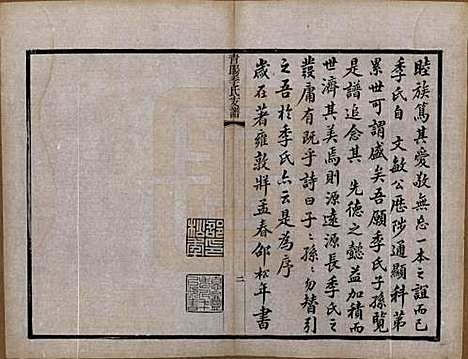 睦族篤其愛敬無忘一本之誼而已
季氏自　文敏公歷陟通顯科第
累世可謂盛矣吾願季氏子孫覽
是譜追念其　先德之懿益加積而
世濟其美焉則源遠源長季氏之
發庸有既乎詩曰子〻孫〻勿替引
之吾於季氏亦云是為序
歲在著雍敦牂孟春邵松年書
青暘季氏支譜
二